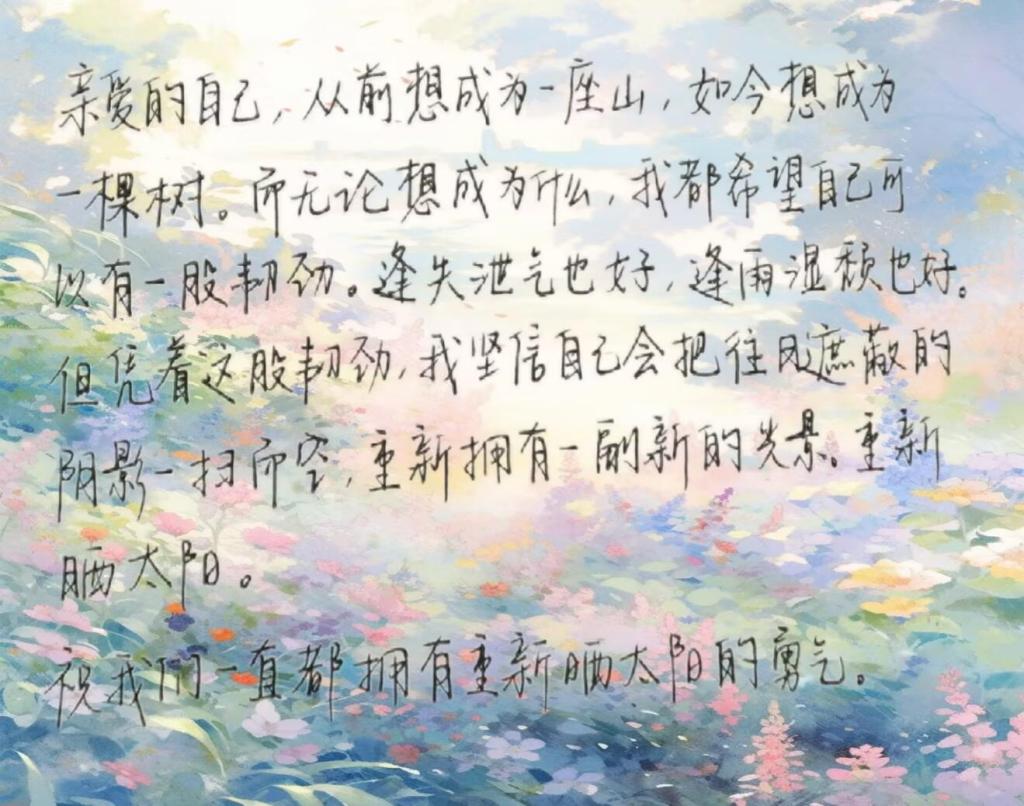 亲爱的自己，从前想成为一座山，如今想成为
一棵树。而无论想成为什么，我都希望自己可
以有一股韧劲。逢失泄气也好，逢雨湿颓也好。
但凭着这股韧劲，我坚信自己会把往日遮蔽的
阴影一扫而空，重新拥有一副新的光景。重新
晒太阳。
祝我们一直都拥有重新晒太阳的勇气。